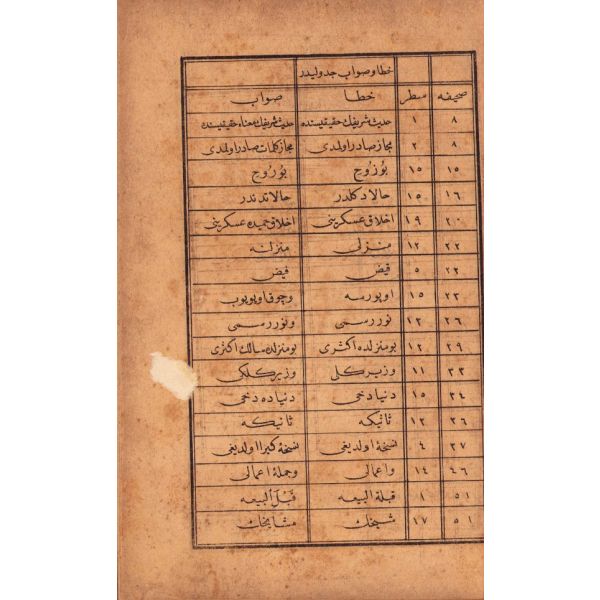 خطا و صواب جدولیدر
صحیفه سطر خطا صواب
٨ ١ حدیث شریفك حقیقتیسنده حدیث شریفك معناء حقیقتیسنده
٨ ٢ مجاز صادر اولمدی مجاز كلمات صادر اولمدی
١٥ ١٥ بوزوج بوروج
١٦ ١٥ حالا دكلدر حالاتدندر
٢٠ ١٩ اخلاق عسكریتی اخلاق حمیده عسكریتی
٢٢ ١٢ منزلی منزلنه
٢٣ ٥ قیض فیض
٢٣ ١٥ اوپورسه وچوق اوپوب
٢٦ ١٢ نور رسمی ونور رسمی
٢٩ ١٢ بو منزلده اكثری بو منزلده سالك اكثری
٣٣ ١١ وزیر كلی وزیر كلكی
٣٤ ١٥ دنیا دخی دنیاده دخی
٣٦ ١٢ ثاثیكه ثانیكه
٣٧ ٤ نسخهٔ اولدیغی نسخهٔ كبرا اولدیغی
٤٦ ١٤ واعمالی وجملهٔ اعمالی
٥١ ٨ قبلة البیعه قبل البیعه
٥١ ١٧ شیخك مشایخك